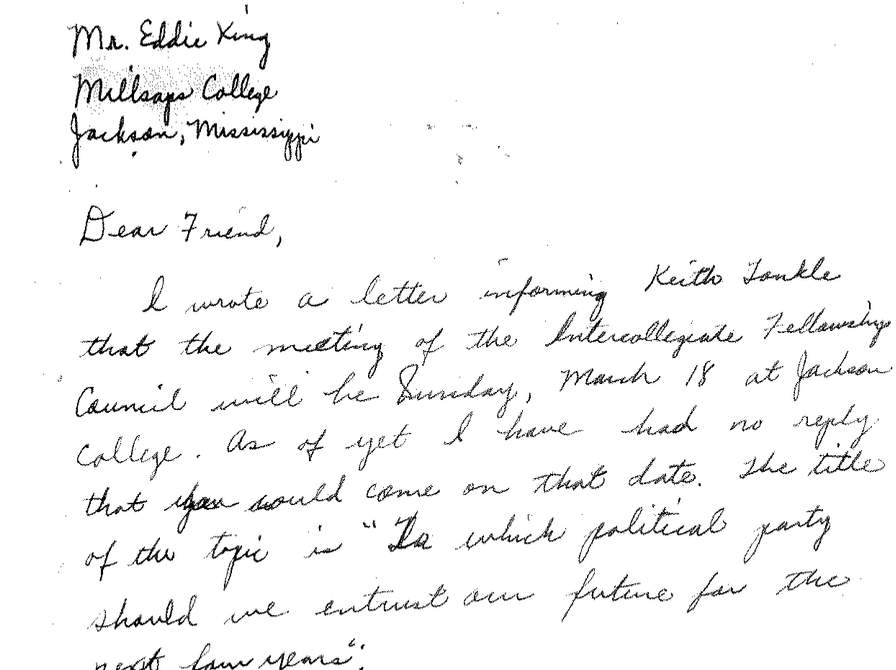 Mr. Eddie King
Millsaps College
Jackson, Mississippi
Dear Friend,
I wrote a letter informing Keith Tonkle
that the meeting of the Intercollegiate Fellowship
Council will be Sunday, March 18 at Jackson
College. As of yet I have had no reply
that you would come on that date. The title
of the topic is "To which political party
should we entrust our future for the
next four years".